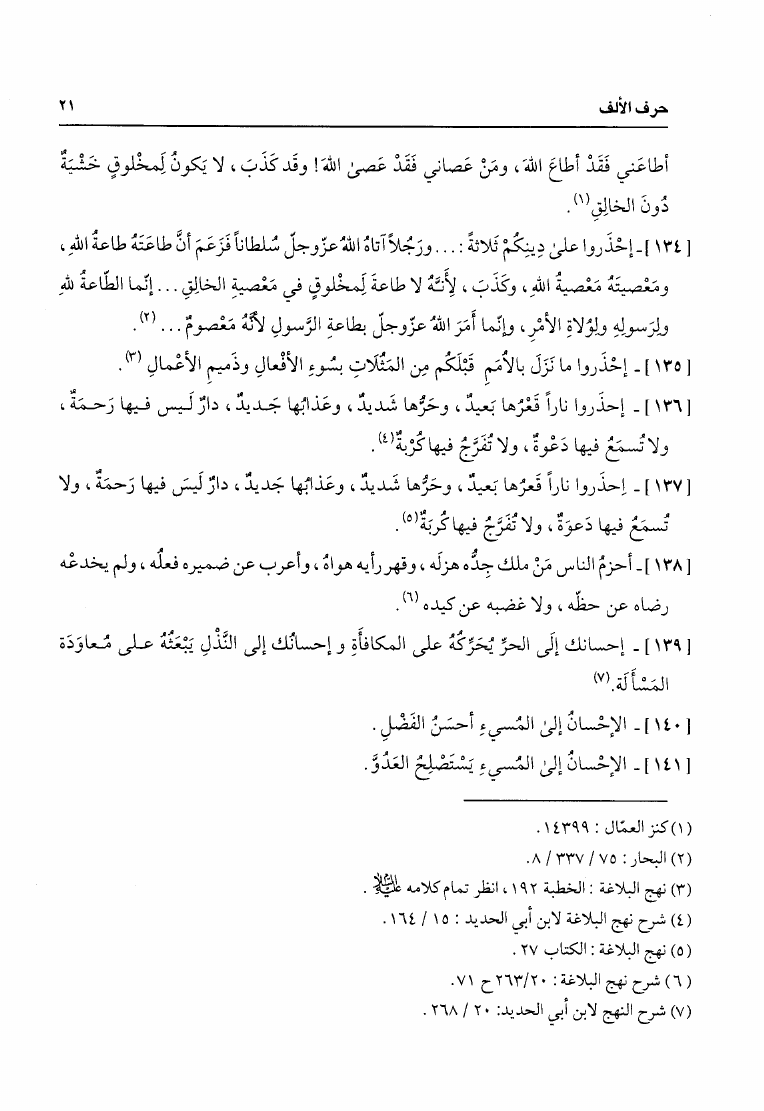 حرف الألف ٢١
أطاعَني فَقَدْ أطاعَ اللهَ، ومَنْ عَصاني فَقَدْ عَصىٰ اللهَ! وقَد كَذَبَ، لا يَكونُ لِمَخْلوقٍ خَشْيَةٌ
دُونَ الخالِقِ(١).
[١٣٤] ـ إحْذَروا علىٰ دِينِكُمْ ثَلاثةً: ... ورَجُلاً آتاهُ اللهُ عزّوجلّ سُلطاناً فَزَعَمَ أنَّ طاعَتَهُ طاعةُ اللهِ،
ومَعْصيتَهُ مَعْصيةُ اللهِ، وكَذَبَ، لِأنَّهُ لا طاعةَ لِمَخْلوقٍ في مَعْصيةِ الخالِقِ ... إنّما الطّاعةُ للهِ
ولِرَسولِهِ ولِوُلاةِ الأمْرِ، وإنّما أمَرَ اللهُ عزّوجلّ بطاعةِ الرَّسولِ لأنَّهُ مَعْصومٌ ... (٢).
[١٣٥] ـ إحْذَروا ما نَزَلَ بالأُمَمِ قَبْلَكُم مِن المَثُلَاتِ بسُوءِ الأفْعالِ وذَميمِ الأعْمالِ (٣).
[١٣٦] ـ إحذَروا ناراً قَعْرُها بَعيدٌ، وحَرُّها شَديدٌ، وعَذابُها جَديدٌ، دارٌ لَيس فيها رَحمَةٌ،
ولا تُسمَعُ فيها دَعْوةٌ، ولا تُفَرَّجُ فيها كُرْبةٌ(٤).
[١٣٧] ـ إحذَروا ناراً قَعرُها بَعيدٌ، وحَرُّها شَديدٌ، وعَذابُها جَديدٌ، دارٌ لَيسَ فيها رَحمَةٌ، ولا
تُسمَعُ فيها دَعوَةٌ، ولا تُفَرَّجُ فيها كُربَةٌ(٥).
[١٣٨] ـ أحزمُ الناس مَنْ ملك جِدُّه هزلَه، وقهر رأيه هواهُ، وأعرب عن ضميره فعلُه، ولم يخدعْه
رضاه عن حظّه، ولا غضبه عن كيده (٦).
[١٣٩] ـ إحسانك إلَى الحرِّ يُحَرِّكُهُ على المكافأةِ و إحسانُك إلى النَّذْلِ يَبْعَثُهُ على مُعاوَدَة
المَسْألَة.(٧)
[١٤٠] ـ الإحْسانُ إلىٰ المُسيءِ أحسَنُ الفَضْلِ.
[١٤١] ـ الإحْسانُ إلىٰ المُسيءِ يَسْتَصْلِحُ العَدُوَّ.
(١) كنز العمّال: ١٤٣٩٩.
(٢) البحار: ٧٥ / ٣٣٧ / ٨.
(٣) نهج البلاغة: الخطبة ١٩٢، انظر تمام كلامه عليه السلام.
(٤) شرح نهج البلاغة لابن أبي الحديد: ١٥ / ١٦٤.
(٥) نهج البلاغة: الكتاب ٢٧.
(٦) شرح نهج البلاغة: ٢٠/ ٢٦٣ ح ٧١.
(٧) شرح النهج لابن أبي الحديد: ٢٠ / ٢٦٨.